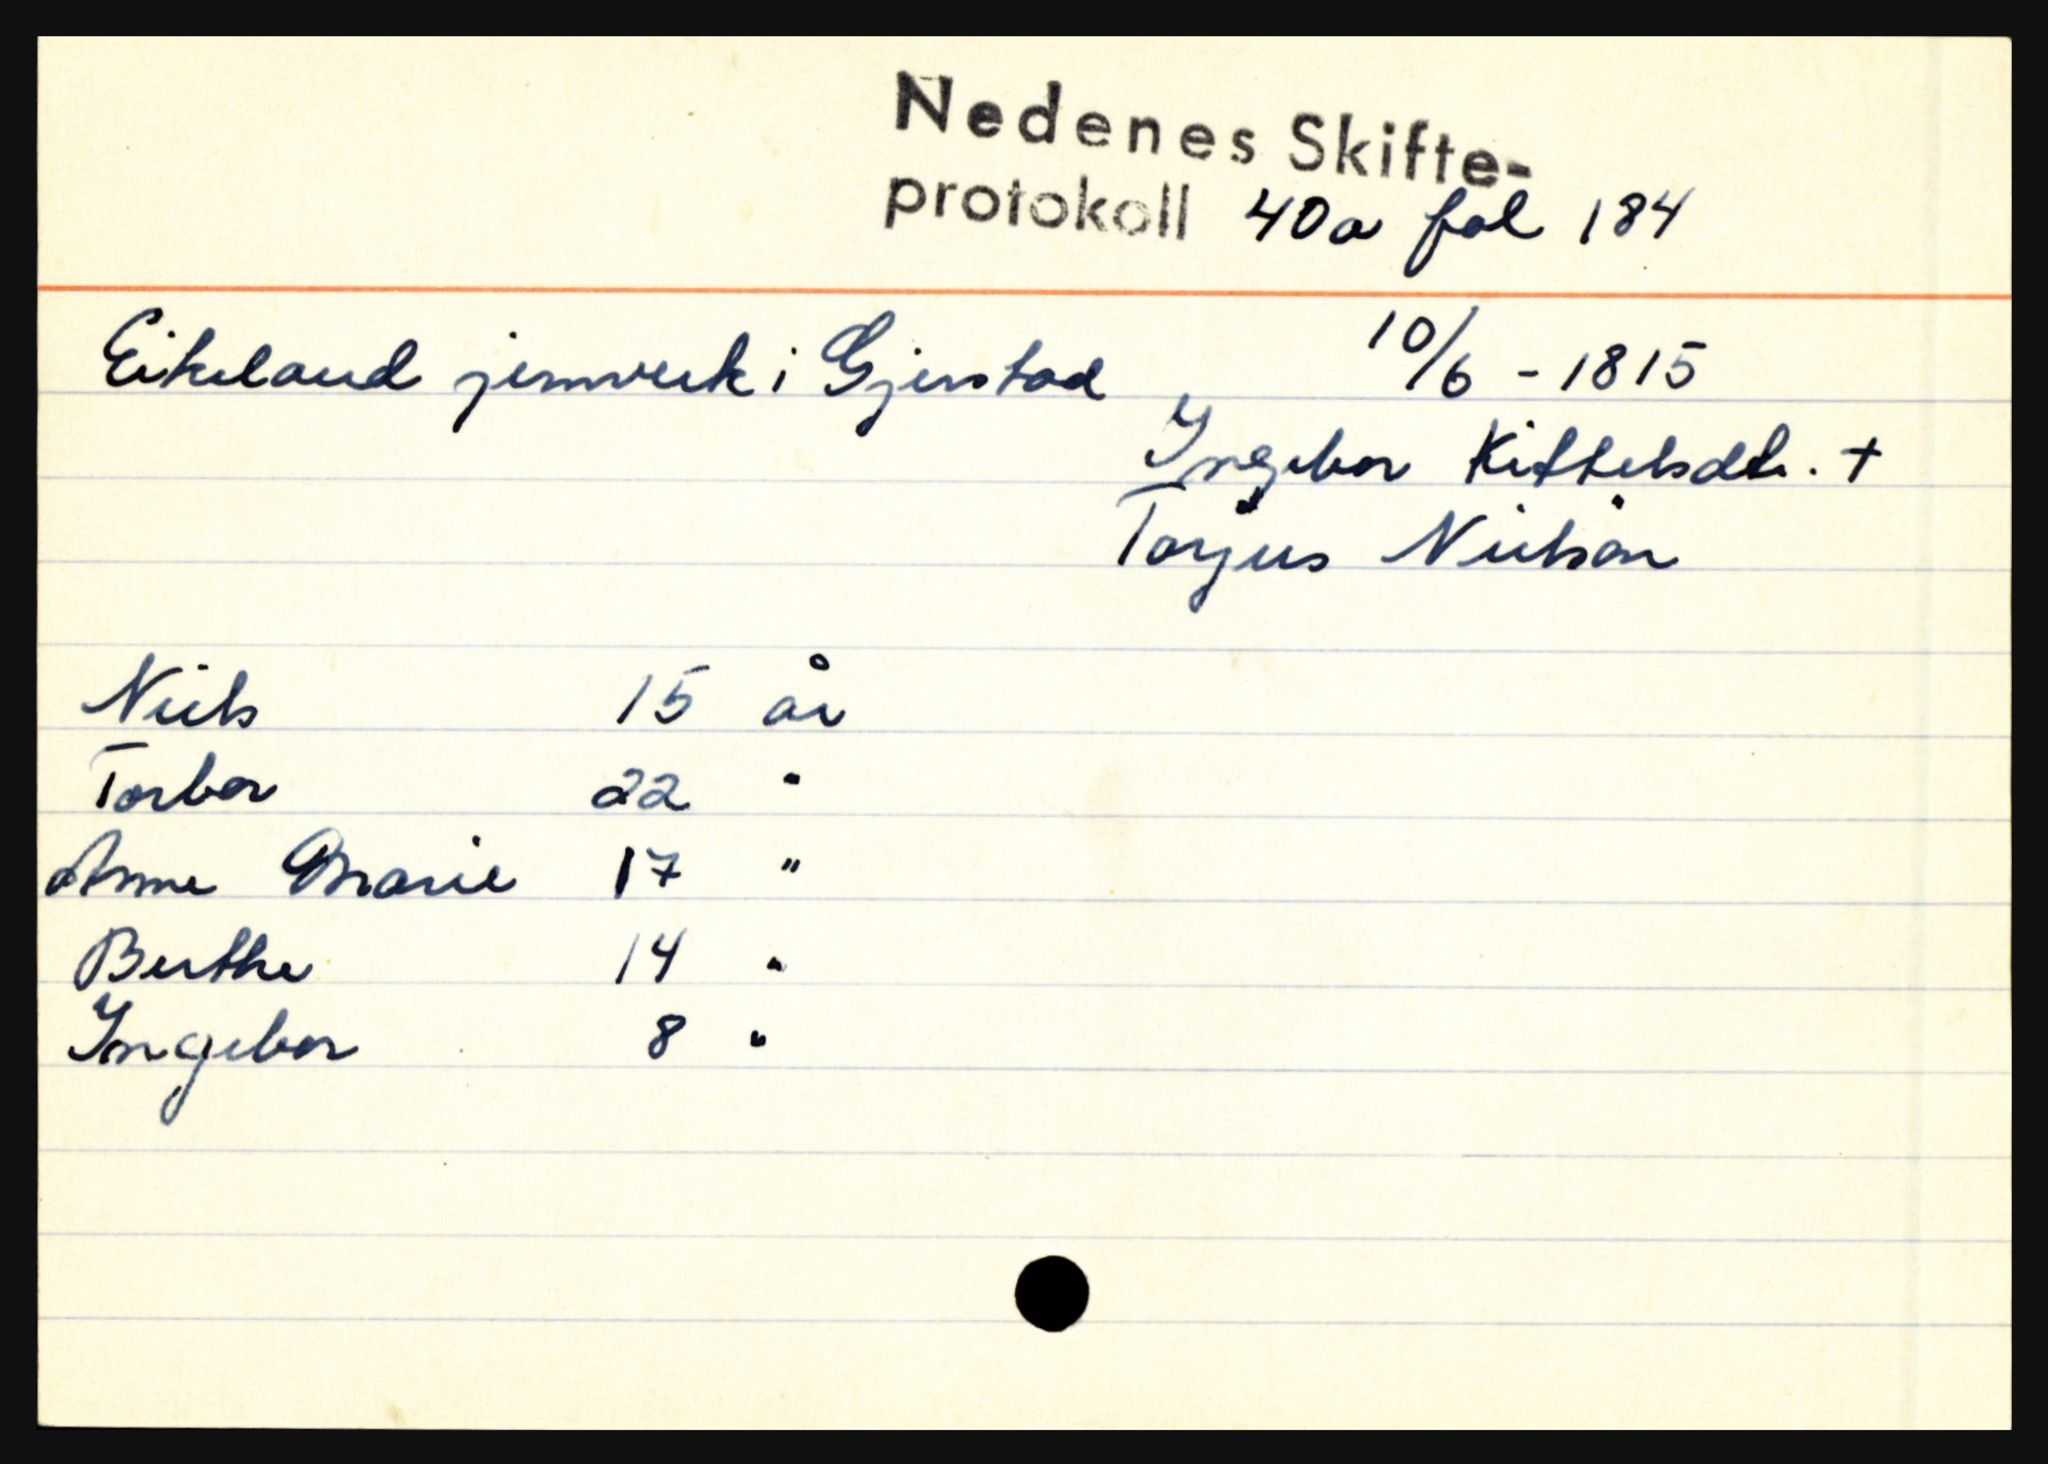 Nedenes Skifte-
protokoll 40a fol 184
Eikeland jernverk i Gjerstad 10/6 - 1815
Ingebor Kittelsdtr. +
Torjus Nielsøn
Niels 15 år
Torbor 22 "
Anne Marie 17 "
Berthe 14 "
Ingebor 8 "